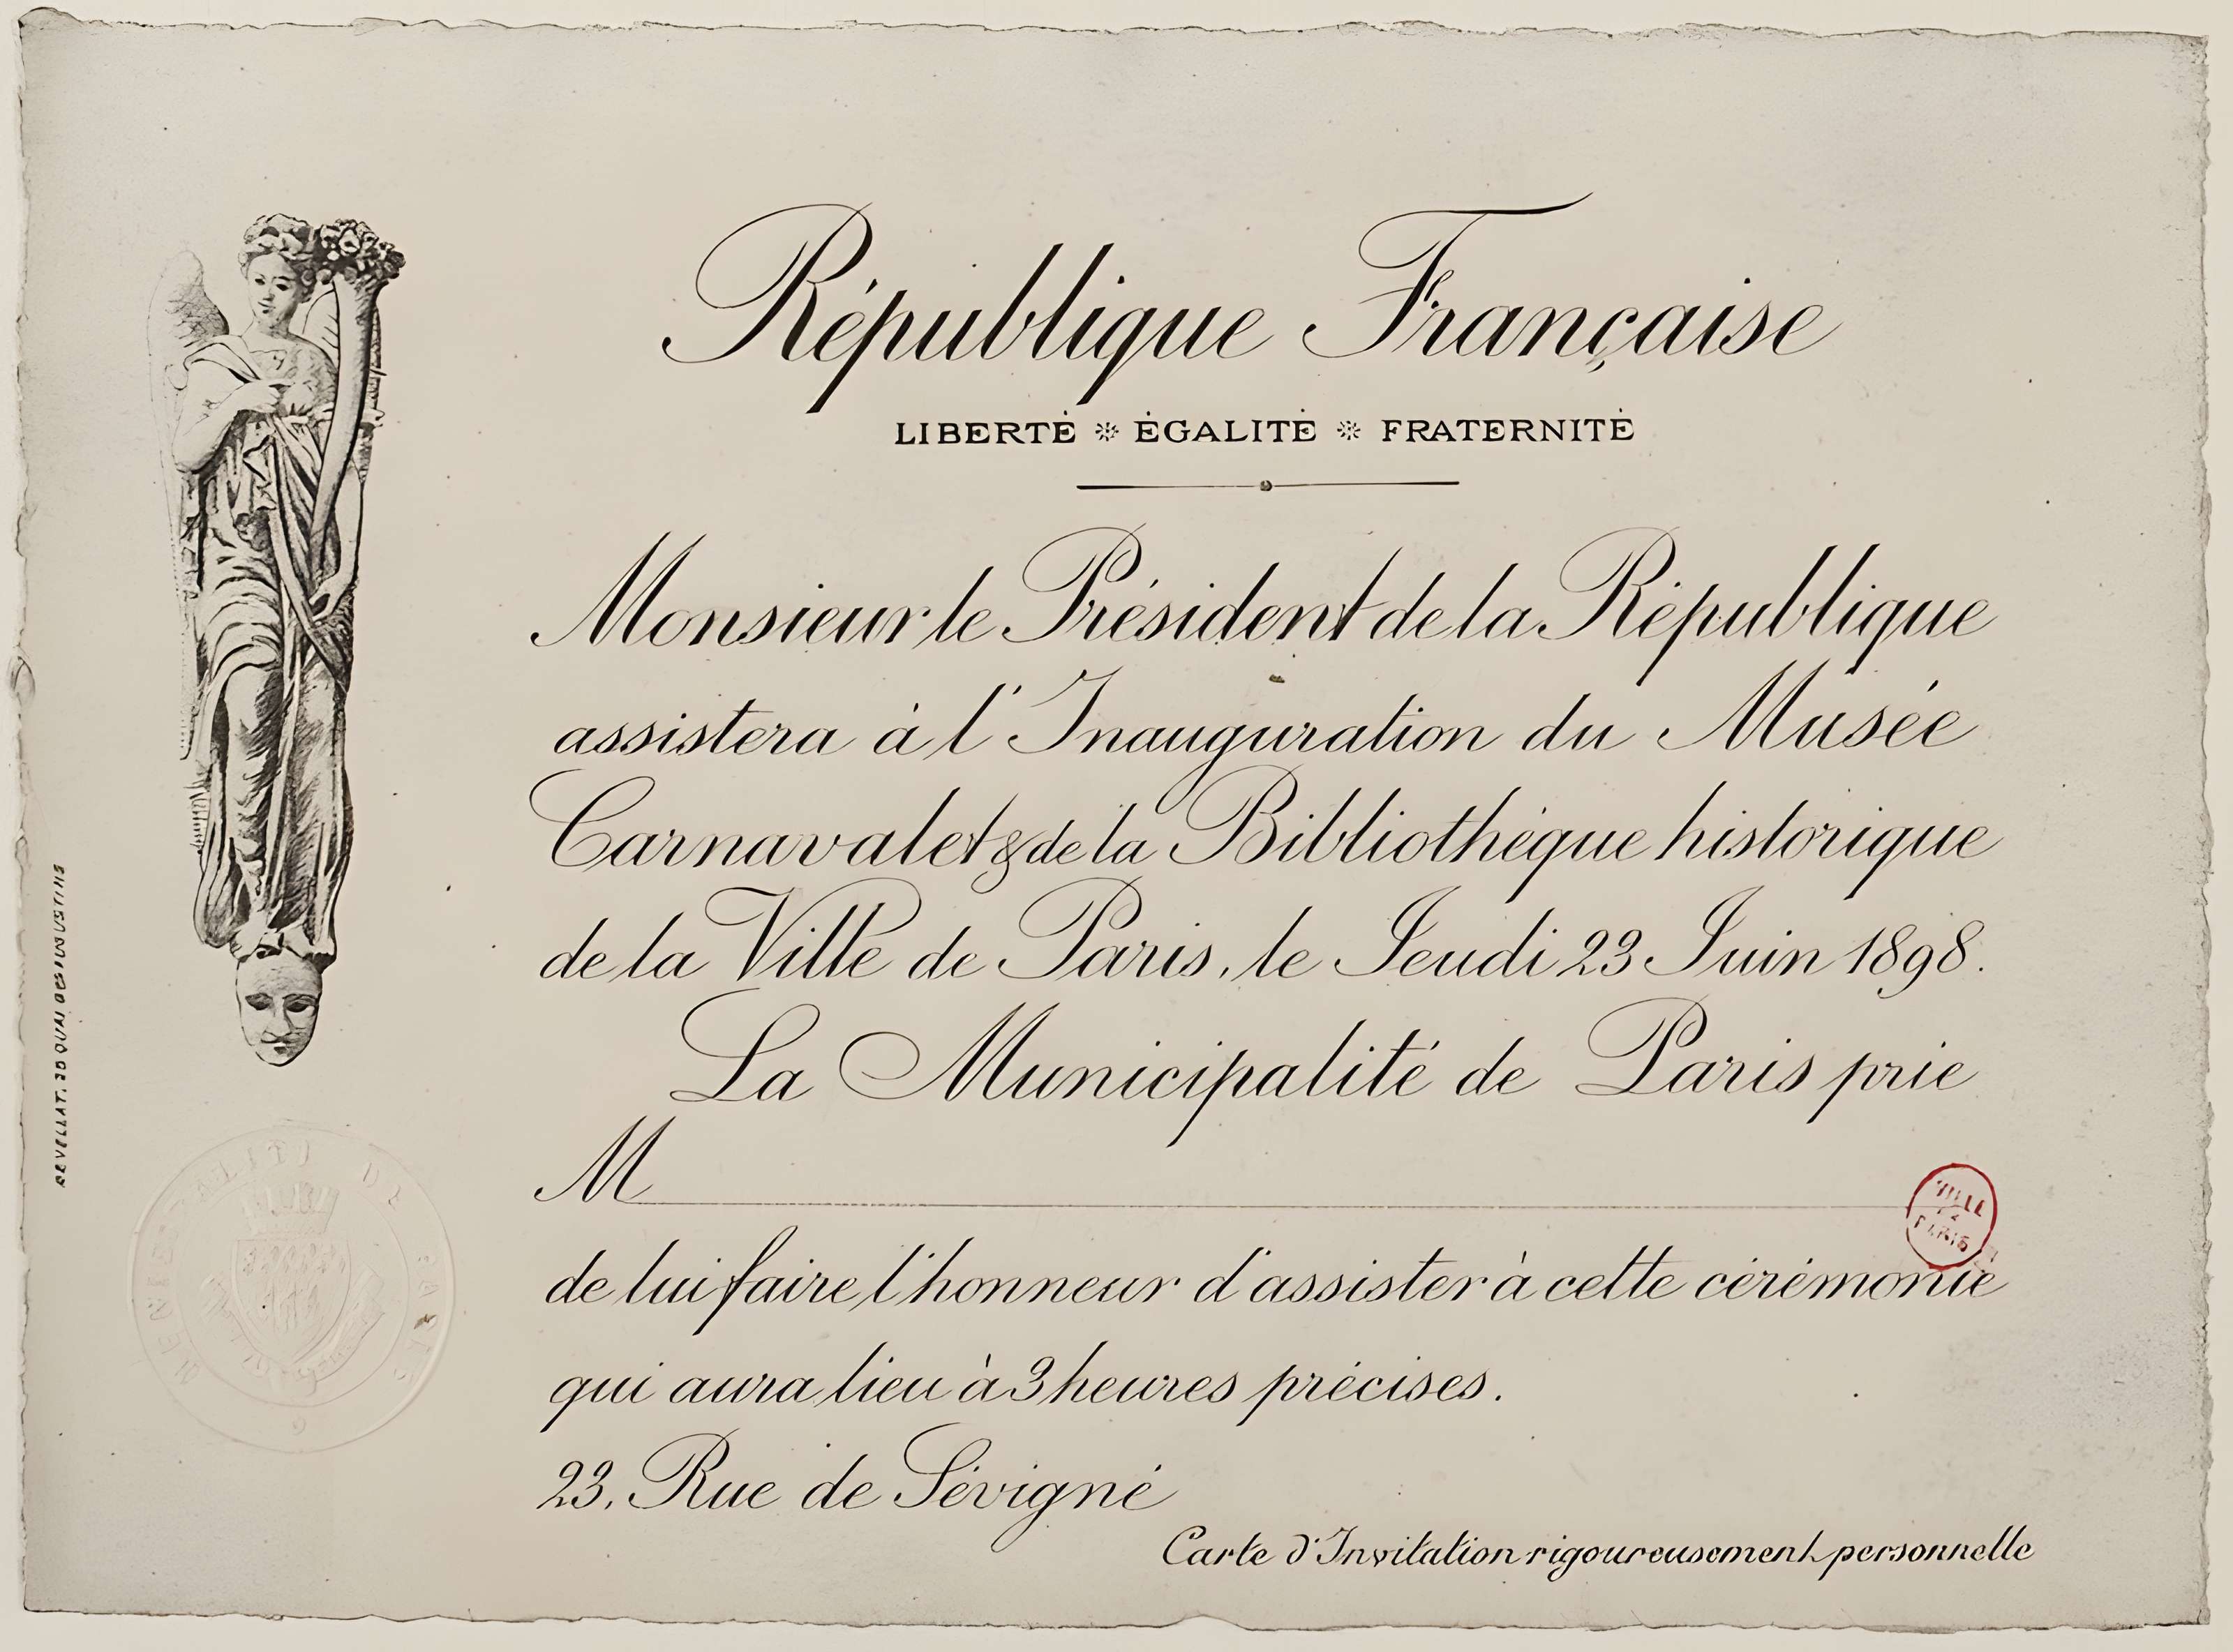 République Française
LIBERTÉ ❊ ÉGALITÉ ❊ FRATERNITÉ
Monsieur le Président de la République
assistera à l'Inauguration du Musée
Carnavalet & de la Bibliothèque historique
de la Ville de Paris, le Jeudi 23 Juin 1898.
La Municipalité de Paris prie
M
de lui faire l'honneur d'assister à cette cérémonie
qui aura lieu à 3 heures précises.
23, Rue de Sévigné
Carte d'Invitation rigoureusement personnelle
VILLE
PARIS
QUAI DES